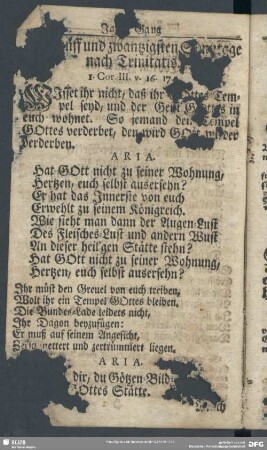 Gang
und zwanzigsten
nach Trinitatis
1. Cor. III. v. 16. 17.
Wisset ihr nicht, daß ihr GOttes Tem-
pel seyd, und der Geist GOttes in
euch wohnet. So jemand den Tempel
GOttes verderbet, den wird GOtt wieder
verderben.
ARIA.
Hat GOtt nicht zu seiner Wohnung,
Hertzen, euch selbst ausersehn?
Er hat das Innerste von euch
Erwehlt zu seinem Königreich.
Wie sieht man dann der Augen-Lust
Des Fleisches-Lust und andern Wust
An dieser heil'gen Stätte stehn?
Hat GOtt nicht zu seiner Wohnung,
Hertzen, euch selbst ausersehn?
Ihr müst den Greuel von euch treiben,
Wolt ihr ein Tempel GOttes bleiben.
Die Bundes-Lade leidets nicht,
Ihr Dagon beyzufügen:
Er muß auf seinem Angesicht,
und zertrümmert liegen.
ARIA.
dir, du Götzen-Bild
GOttes Stätte.
SLUB
DFG